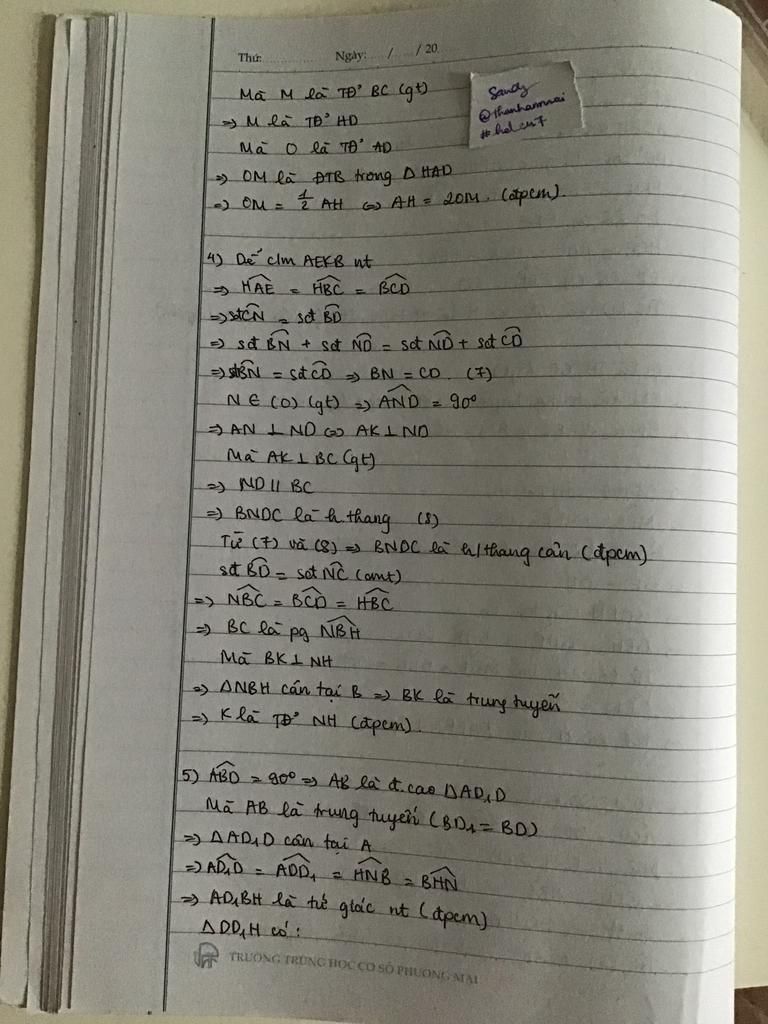 Thứ: Ngày: / / 20
Mà M là TĐ' BC (gt)
Sandy
@thanhanmai
⇒ M là TĐ' HD
Mà O là TĐ' AD
⇒ OM là ĐTB trong Δ HAD
⇒ OM = 1/2 AH ⇔ AH = 2OM. (đpcm).
4) Dễ c/m AEKB nt
⇒ HAE = HBC = BCD
⇒ sđCN = sđ BD
⇒ sđ BN + sđ ND = sđ ND + sđ CD
⇒ sđBN = sđCD ⇒ BN = CD. (7)
N ∈ (O) (gt) ⇒ AND = 90°
⇒ AN ⊥ ND ⇔ AK ⊥ ND
Mà AK ⊥ BC (gt)
⇒ ND // BC
⇒ BNDC là h thang (8)
Từ (7) và (8) ⇒ BNDC là h/thang cân (đpcm)
sđ BD = sđ NC (cmt)
⇒ NBC = BCD = HBC
⇒ BC là pg NBH
Mà BK ⊥ NH
⇒ ΔNBH cân tại B ⇒ BK là trung tuyến
⇒ K là TĐ' NH (đpcm).
5) ABD = 90° ⇒ AB là đ.cao ΔAD₁D
Mà AB là trung tuyến (BD₁ = BD)
⇒ ΔAD₁D cân tại A
⇒ AD₁D = ADD₁ = HNB = BHN
⇒ AD₁BH là tứ giác nt (đpcm)
ΔDD₁H có:
TRƯỜNG TRUNG HỌC CƠ SỞ PHƯƠNG MAI